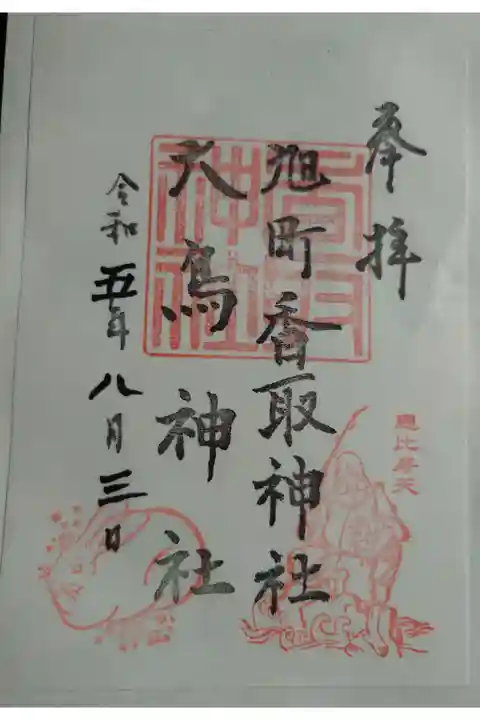 奉拝
旭町香取神社
大鳥神社
令和五年八月三日
恵比寿天
香取神社